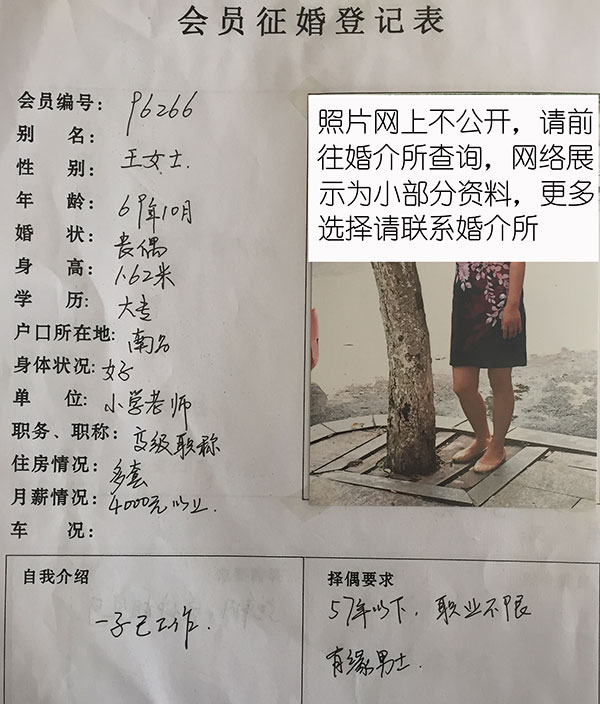 会员征婚登记表
会员编号： 96266
别 名：
王女士.
性 别：
年 龄： 69年10月
婚 状： 丧偶
身 高： 1.62米
学 历： 大专
户口所在地：
身体状况： 好
单 位： 小学老师
职务、职称： 高级职称
住房情况： 多套
月薪情况： 4000元以上.
车 况：
照片网上不公开，请前
往婚介所查询，网络展
示为小部分资料，更多
选择请联系婚介所
自我介绍
一子已工作.
择偶要求
57年以下，职业不限
有缘男士.